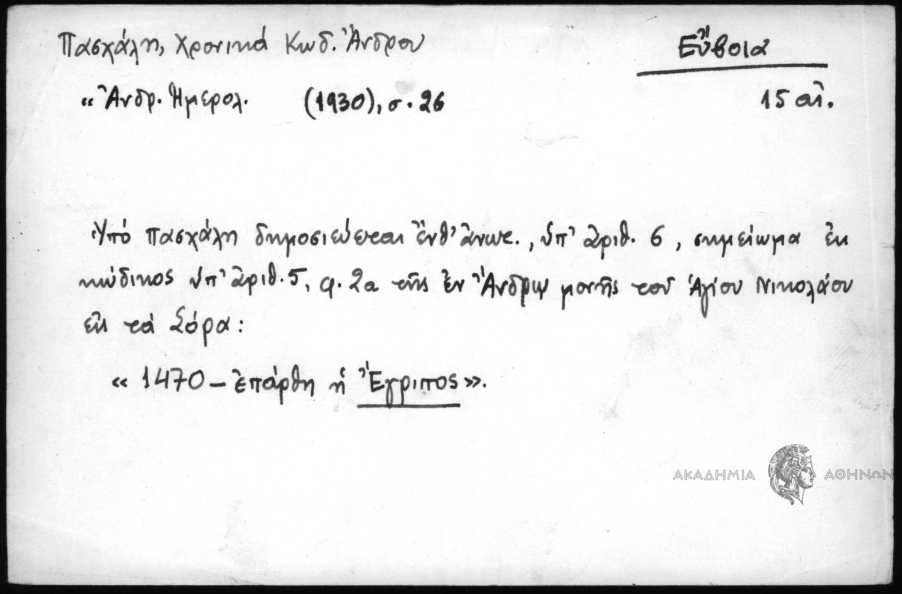 Πασχάλη, Χρονικά Κωδ. Ἄνδρου
Εὔβοια
«Ἀνδρ. Ἡμερολ. (1930), σ. 26
15 αἰ.
Ὑπό Πασχάλη δημοσιεύεται ἔνθ' ἀνωτ., ὑπ' ἀριθ. 6, σημείωμα ἐκ
κώδικος ὑπ' ἀριθ. 5, φ. 2α τῆς ἐν Ἄνδρῳ μονῆς τοῦ Ἁγίου Νικολάου
εἰς τά Σόρα:
«1470 – ἐπάρθη ἡ Ἔγριπος».
ΑΚΑΔΗΜΙΑ ΑΘΗΝΩΝ